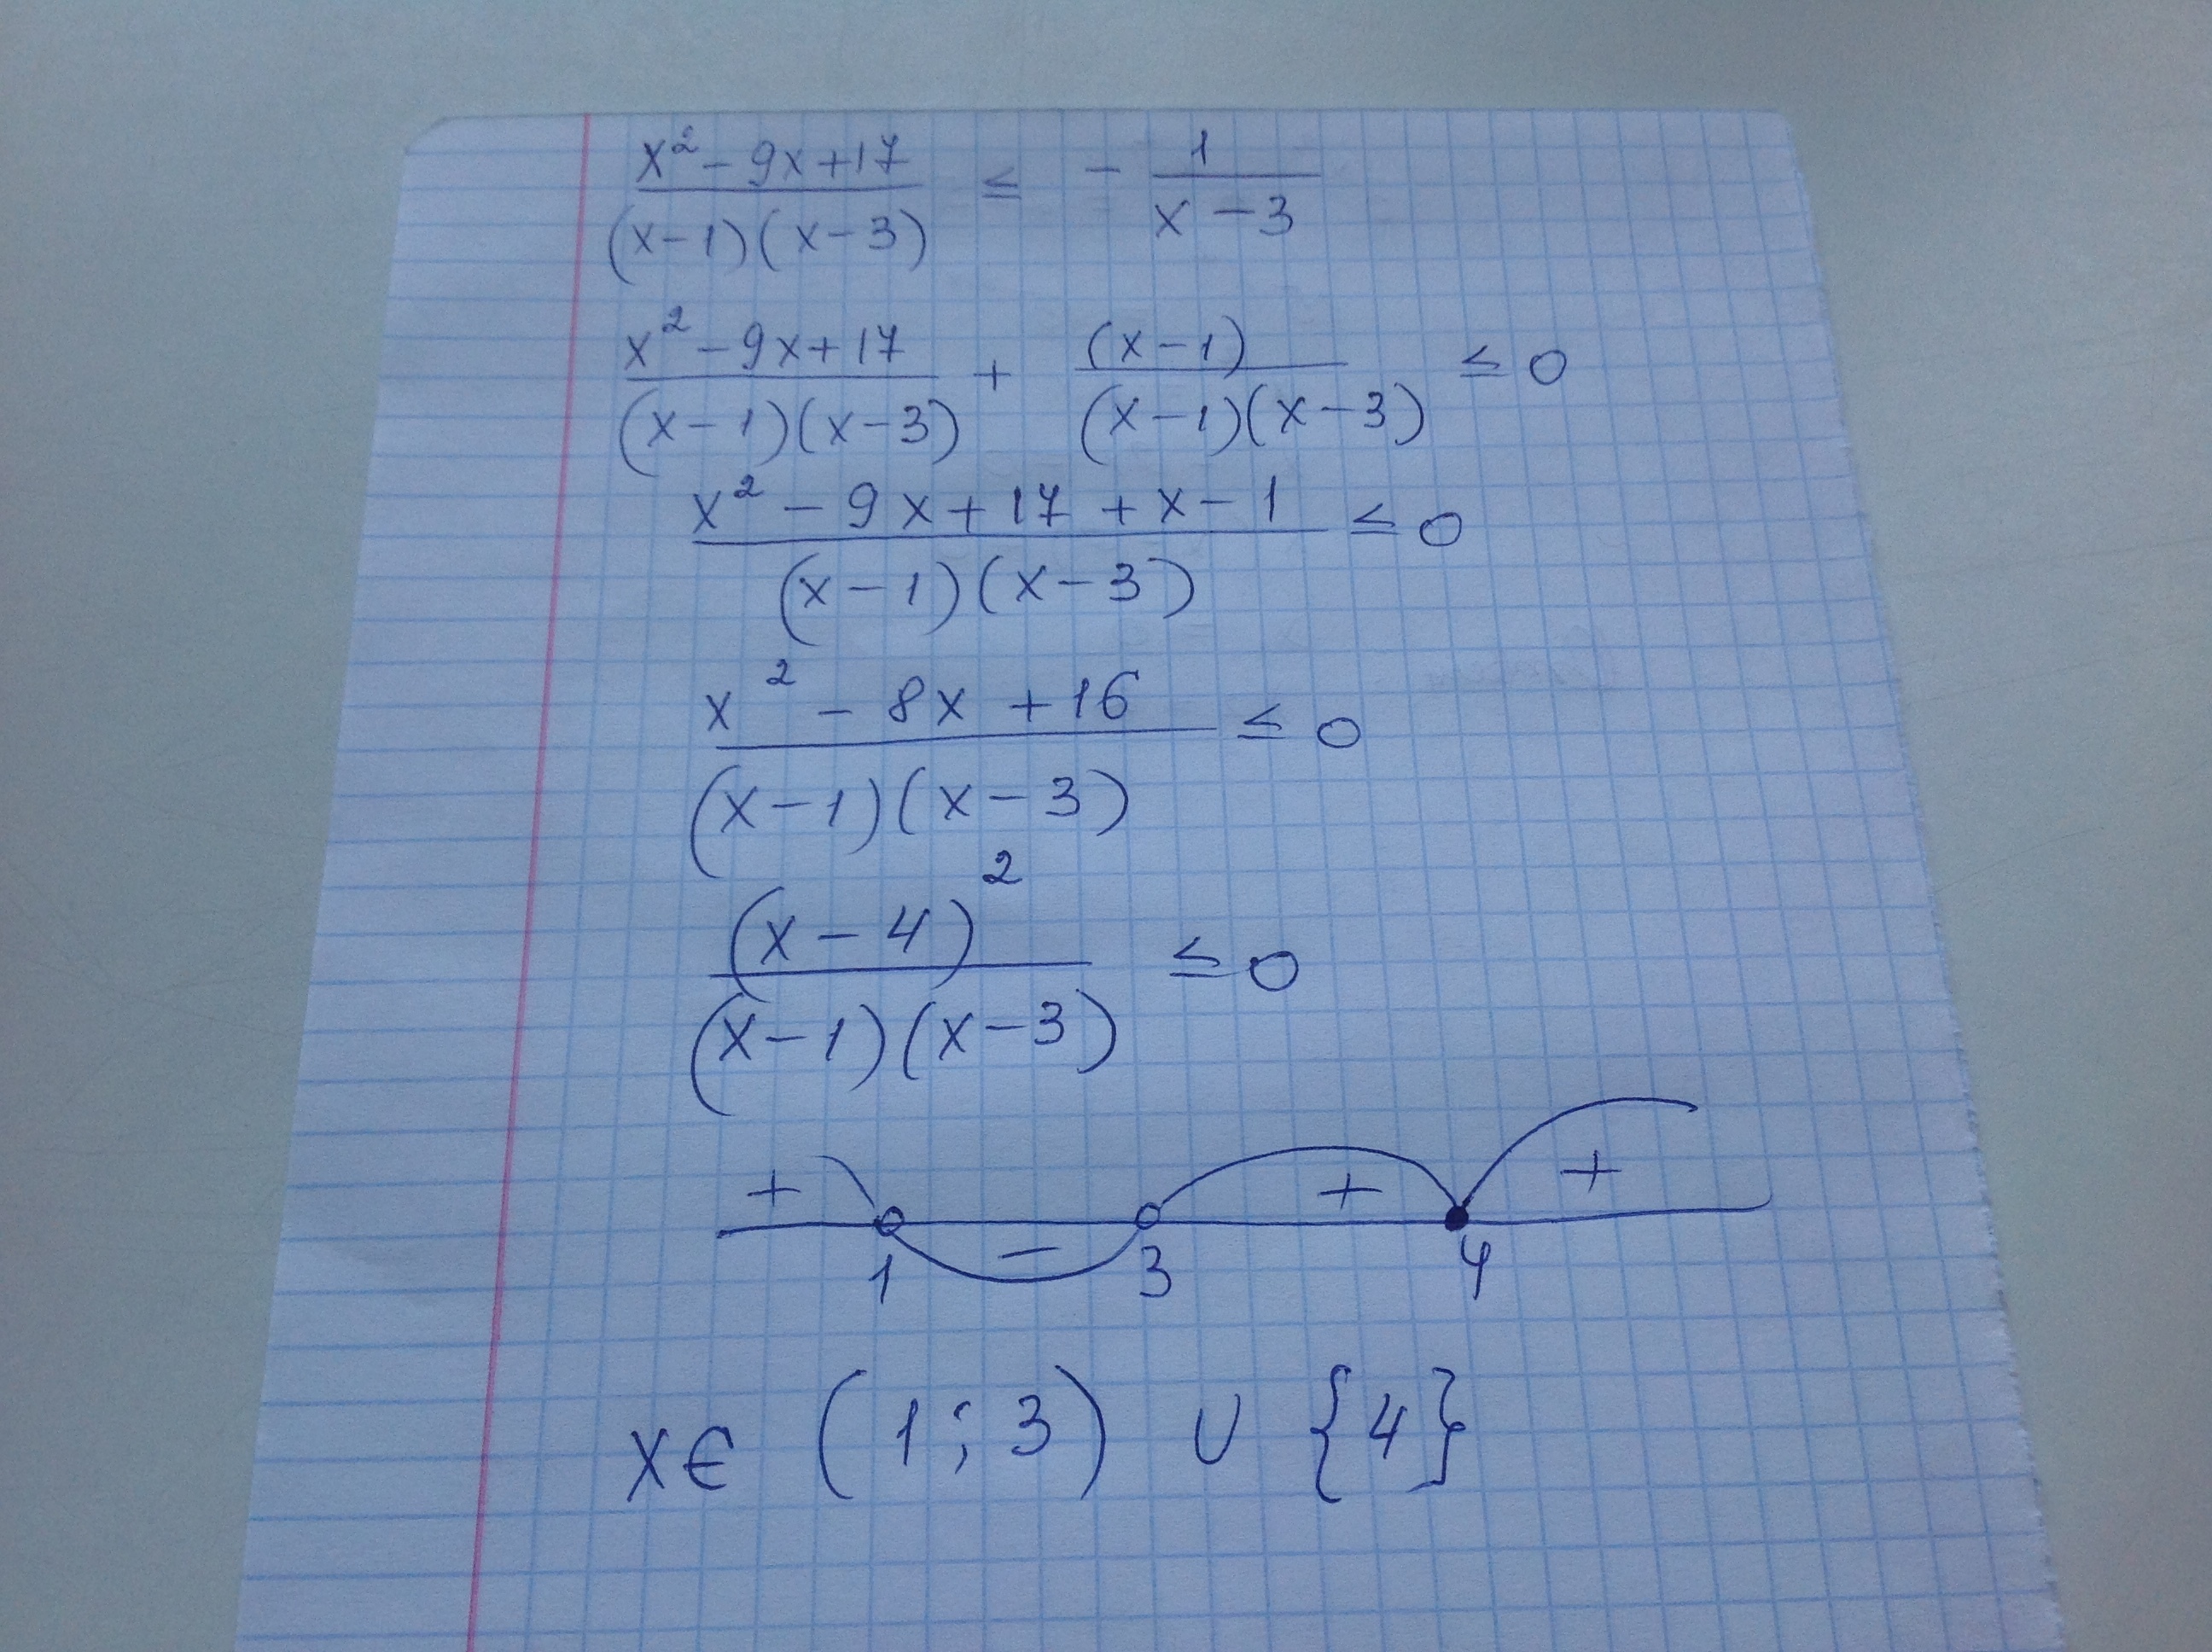 (x² - 9x + 17)/((x-1)(x-3)) ≤ - 1/(x-3)
(x² - 9x + 17)/((x-1)(x-3)) + (x-1)/((x-1)(x-3)) ≤ 0
(x² - 9x + 17 + x - 1)/((x-1)(x-3)) ≤ 0
(x² - 8x + 16)/((x-1)(x-3)) ≤ 0
(x-4)²/((x-1)(x-3)) ≤ 0
+ - + +
1 3 4
x ∈ (1; 3) ∪ {4}